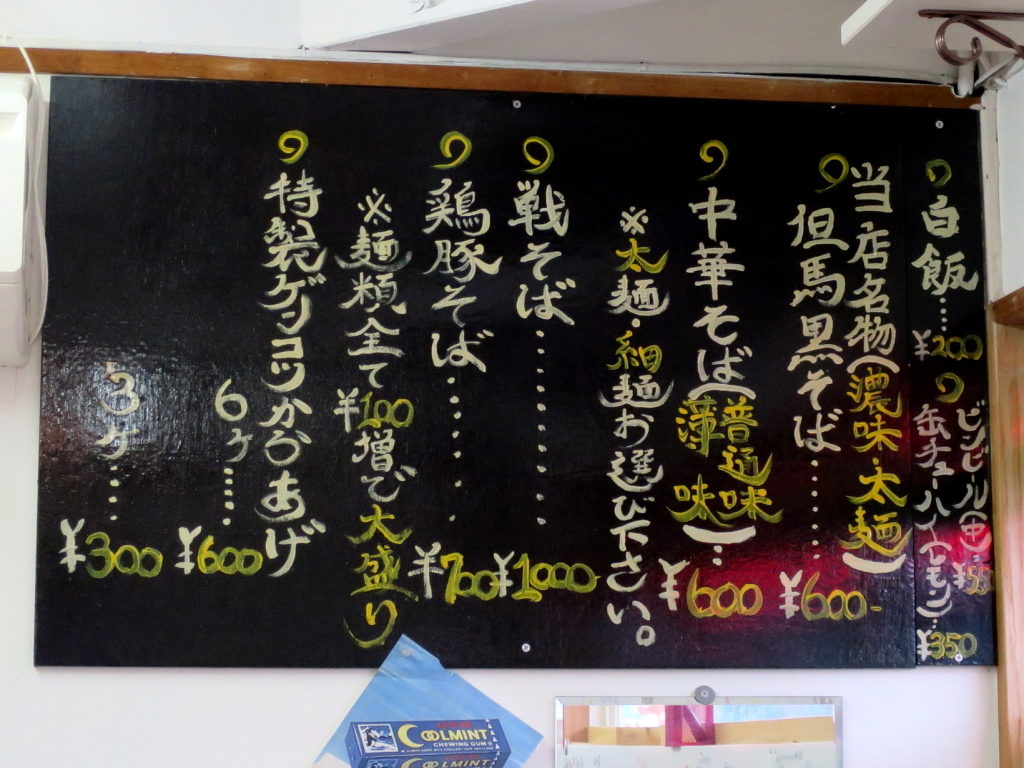 白飯....¥200
ビンビール(中)...¥55
缶チューハイ(レモン)...¥350
当店名物(濃味・太麺)
但馬黒そば......¥600-
中華そば(普通味 薄味)...¥600
※太麺・細麺お選び下さい。
戦そば.........¥1000-
鶏豚そば........¥700
※麺類全て¥100増で大盛り
特製ゲンコツからあげ
6ヶ.....¥600
3ヶ....¥300
COOLMINT
CHEWING GUM
COOLMINT
N